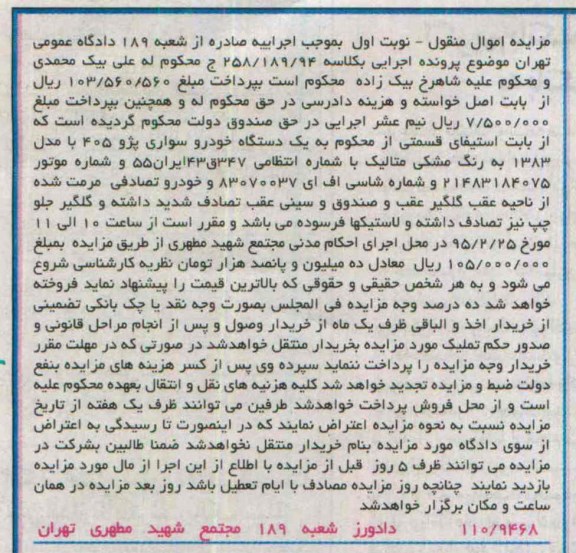 مزایده اموال منقول - نوبت اول بموجب اجراییه صادره از شعبه ۱۸۹ دادگاه عمومی
تهران موضوع پرونده اجرایی بکلاسه ۲۵۸/۱۸۹/۹۴ ج محکوم له علی بیک محمدی
و محکوم علیه شاهرخ بیک زاده محکوم است بپرداخت مبلغ ۱۰۳/۵۶۰/۵۶۰ ریال
از بابت اصل خواسته و هزینه دادرسی در حق محکوم له و همچنین بپرداخت مبلغ
۷/۵۰۰/۰۰۰ ریال نیم عشر اجرایی در حق صندوق دولت محکوم گردیده است که
از بابت استیفای قسمتی از محکوم به یک دستگاه خودرو سواری پژو ۴۰۵ با مدل
۱۳۸۳ به رنگ مشکی متالیک با شماره انتظامی ۳۴۷ق۴۳ایران۵۵ و شماره موتور
۲۱۴۸۳۱۸۴۰۷۵ و شماره شاسی اف ای ۸۳۰۷۰۰۳۷ و خودرو تصادفی مرمت شده
از ناحیه عقب گلگیر عقب و صندوق و سینی عقب تصادف شدید داشته و گلگیر جلو
چپ نیز تصادف داشته و لاستیکها فرسوده می باشد و مقرر است از ساعت ۱۰ الی ۱۱
مورخ ۹۵/۲/۲۵ در محل اجرای احکام مدنی مجتمع شهید مطهری از طریق مزایده بمبلغ
۱۰۵/۰۰۰/۰۰۰ ریال معادل ده میلیون و پانصد هزار تومان نظریه کارشناسی شروع
می شود و به هر شخص حقیقی و حقوقی که بالاترین قیمت را پیشنهاد نماید فروخته
خواهد شد ده درصد وجه مزایده فی المجلس بصورت وجه نقد یا چک بانکی تضمینی
از خریدار اخذ و الباقی ظرف یک ماه از خریدار وصول و پس از انجام مراحل قانونی و
صدور حکم تملیک مورد مزایده بخریدار منتقل خواهدشد در صورتی که در مهلت مقرر
خریدار وجه مزایده را پرداخت ننماید سپرده وی پس از کسر هزینه های مزایده بنفع
دولت ضبط و مزایده تجدید خواهد شد کلیه هزینه های نقل و انتقال بعهده محکوم علیه
است و از محل فروش پرداخت خواهدشد طرفین می توانند ظرف یک هفته از تاریخ
مزایده نسبت به نحوه مزایده اعتراض نمایند که در اینصورت تا رسیدگی به اعتراض
از سوی دادگاه مورد مزایده بنام خریدار منتقل نخواهدشد ضمنا طالبین بشرکت در
مزایده می توانند ظرف ۵ روز قبل از مزایده با اطلاع از این اجرا از مال مورد مزایده
بازدید نمایند چنانچه روز مزایده مصادف با ایام تعطیل باشد روز بعد مزایده در همان
ساعت و مکان برگزار خواهدشد
۱۱۰/۹۴۶۸ دادورز شعبه ۱۸۹ مجتمع شهید مطهری تهران